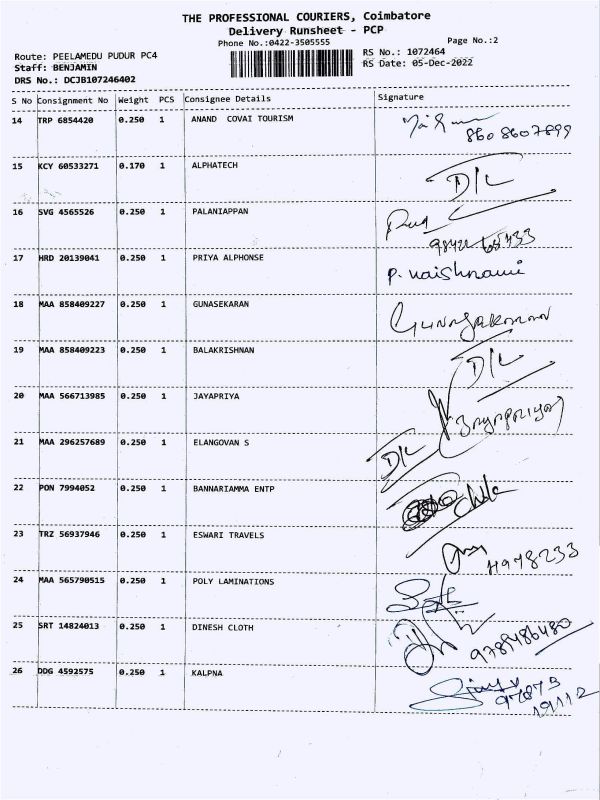 THE PROFESSIONAL COURIERS, Coimbatore
Delivery Runsheet - PCP
Phone No.:0422-3505555
Page No.:2
Route: PEELAMEDU PUDUR PC4
RS No.: 1072464
Staff: BENJAMIN
RS Date: 05-Dec-2022
DRS No.: DCJB107246402
S No Consignment No Weight PCS Consignee Details Signature
14 TRP 6854420 0.250 1 ANAND COVAI TOURISM
8608607899
15 KCY 60533271 0.170 1 ALPHATECH D/L
16 SVG 4565526 0.250 1 PALANIAPPAN
17 HRD 20139041 0.250 1 PRIYA ALPHONSE P. Vaishnavi
18 MAA 858409227 0.250 1 GUNASEKARAN Gunasekaran
19 MAA 858409223 0.250 1 BALAKRISHNAN D/L
20 MAA 566713985 0.250 1 JAYAPRIYA Jayapriya
21 MAA 296257689 0.250 1 ELANGOVAN S D/L
22 PON 7994052 0.250 1 BANNARIAMMA ENTP
23 TRZ 56937946 0.250 1 ESWARI TRAVELS
24 MAA 565790515 0.250 1 POLY LAMINATIONS
25 SRT 14824013 0.250 1 DINESH CLOTH
9789486480
26 DDG 4592575 0.250 1 KALPNA
97873
19112